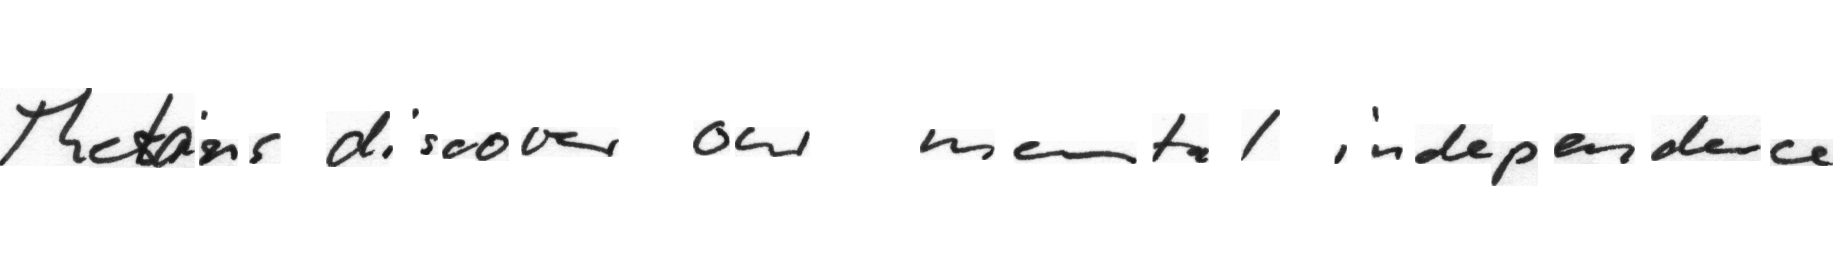 Thetains discover our mental independence